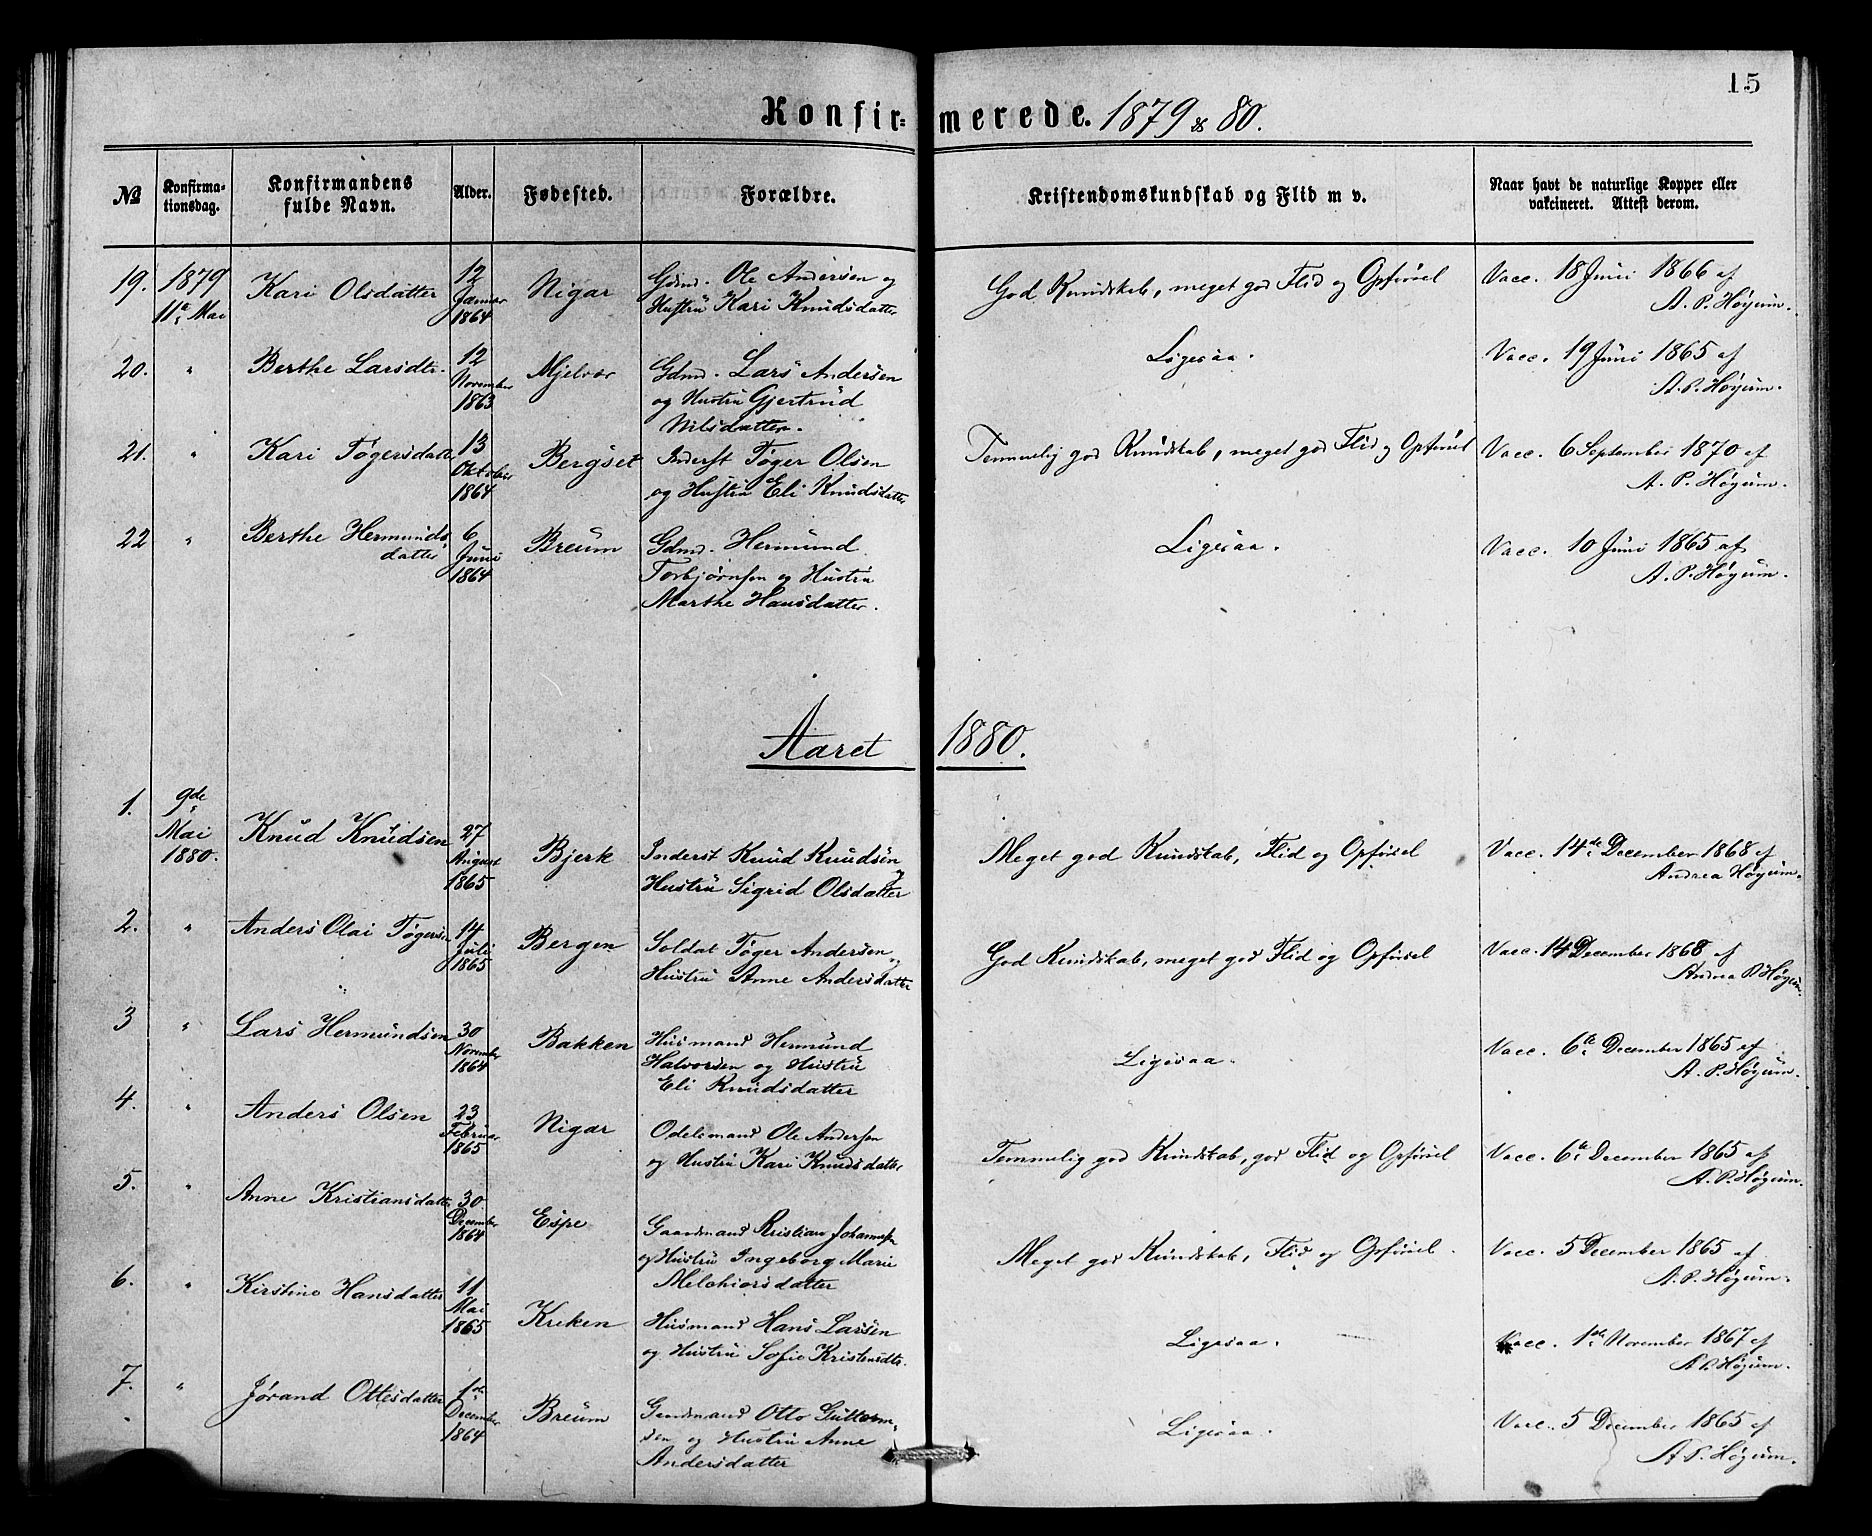 15
Konfir- merede. 1879 & 80.
№ Konfirma-tionsdag. Konfirmandens fulde Navn. Alder. Fødested. Forældre. Kristendomskundskab og Flid m v. Naar havt de naturlige Kopper eller vakcineret. Attest derom.
19. 1879 Kari Olsdatter 12 Nigar Gdmd. Ole Andersen og God Kundskab, meget god Flid og Opførsel Vacc. 18 Juni 1866 af
11te Mai Januar 1864 Hustru Kari Knudsdatter A. P. Høyum.
20. " Berthe Larsdtr. 12 Mjelvær Gdmd. Lars Andersen Ligesaa. Vacc. 19 Juni 1865 af
November 1863 og Hustru Gjertrud A. P. Høyum.
Nilsdatter.
21. " Kari Tøgersdatter 13 Bergset Inderst Tøger Olsen Temmelig god Kundskab, meget god Flid og Opførsel Vacc. 6 September 1870 af
Oktober 1864 og Hustru Eli Knudsdatter A. P. Høyum.
22 " Berthe Hermunds 6 Breum Gdmd. Hermund Ligesaa. Vacc. 10 Juni 1865 af
datter Juni 1864 Torbjørnsen og Hustru A. P. Høyum.
Marthe Hansdatter.
Aaret 1880.
1. 9de Mai 1880. Knud Knudsen 27 August 1865 Bjerk Inderst Knud Knudsen og Meget god Kundskab, Flid og Opførsel Vacc. 14de December 1868 af
Hustru Sigrid Olsdatter Andrea Høyum.
2. " Anders Olai Tøgersen 14 Juli 1865 Bergen Soldat Tøger Andersen og God Kundskab, meget god Flid og Opførsel Vacc. 14 December 1868 af
Hustru Anne Andersdatter Andrea P Høyum.
3 " Lars Hermundsen 30 November 1864 Bakken Husmand Hermund Ligesaa. Vacc. 6te December 1865 af
Halvorsen og Hustru A. P. Høyum.
Eli Knudsdatter
4. " Anders Olsen 23 Februar 1865 Nigar Odelsmand Ole Andersen Temmelig god Kundskab, god Flid og Opførsel Vacc. 6te December 1865 af
og Hustru Kari Knudsdatter A. P. Høyum.
5. " Anne Kristiansdatter 30 December 1864 Espe Gaardmand Kristian Johannesen Meget god Kundskab, Flid og Opførsel. Vacc. 5 December 1865 af
og Hustru Ingeborg Marie A. P. Høyum.
Melchiorsdatter
6. " Kirstine Hansdatter 11 Mai 1865 Kreken Husmand Hans Larsen Ligesaa. Vacc. 1ste November 1867 af
og Hustru Sofie Kristensdtr. A P. Høyum.
7. " Jørand Ottesdatter 1ste December 1864 Breum Gaardmand Otto Guttorm- Ligesaa. Vacc. 5 December 1865 af
sen og Hustru Anne A P. Høyum.
Andersdatter